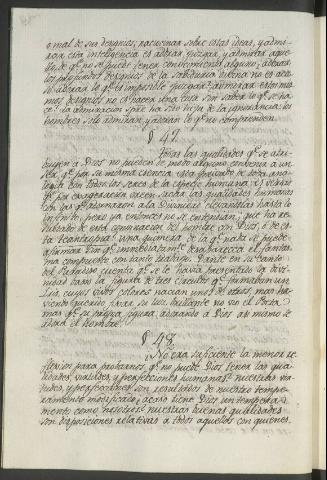 o mal de sus designios; raciocinar sobre estas ideas, y admi-
rar esta inteligencia es adorar, juzgar, y admirar aque-
llo de q.e no se puede tener conocimiento alguno; adorar
los profundos designios de la sabiduria divina no es aca-
so adorar lo q.e es imposible juzgar? admirar estos mis-
mos designios no es hacer una cosa sin saber lo q.e se ha-
ce? La admiracion solo ha sido hija de la ignorancia: los
hombres solo admiran, y adoran lo q.e no comprenden.
§ 47.
Todas las qualidades q.e se atri-
buyen à Dios no pueden de modo alguno convenir à un
Ser q.e por su misma esencia está privado de toda ana-
logia con todos los seres de la especie humana: es verdad
q.e por exagerarlas creen sacar las qualidades humanas
con las q.e adornaron à la Divinidad elevandolas hasta lo
infinito, pero ya entonces no se entienden; que ha re-
sultado de esta combinacion del hombre con Dios, ó de es-
ta teantropia? una quimera de la q.e nada se puede
afirmar sin q.e inmediatam.te desaparezca el fantas-
ma compuesto con tanto trabajo. Dante en su canto
del Paraiso cuenta q.e se le havia presentado la divi-
nidad bajo la figura de tres circulos q.e formaban un
Iris, cuyos vivos colores nacian unos de otros; mas ha-
viendo querido fixar su luz brillante no vio el Poeta
mas q.e su propia figura, adorando à Dios asi mismo se
adora el hombre.
§ 48.
No era suficiente la menor re-
flexion para probarnos q.e no puede Dios tener las qua-
lidades, virtudes, y perfecciones humanas? nuestras vir-
tudes, y perfecciones son resultados de nuestro tempe-
ramento modificado; acaso tiene Dios un tempera-
mento como nosotros? nuestras buenas qualidades
son disposiciones relativas à todos aquellos con quienes